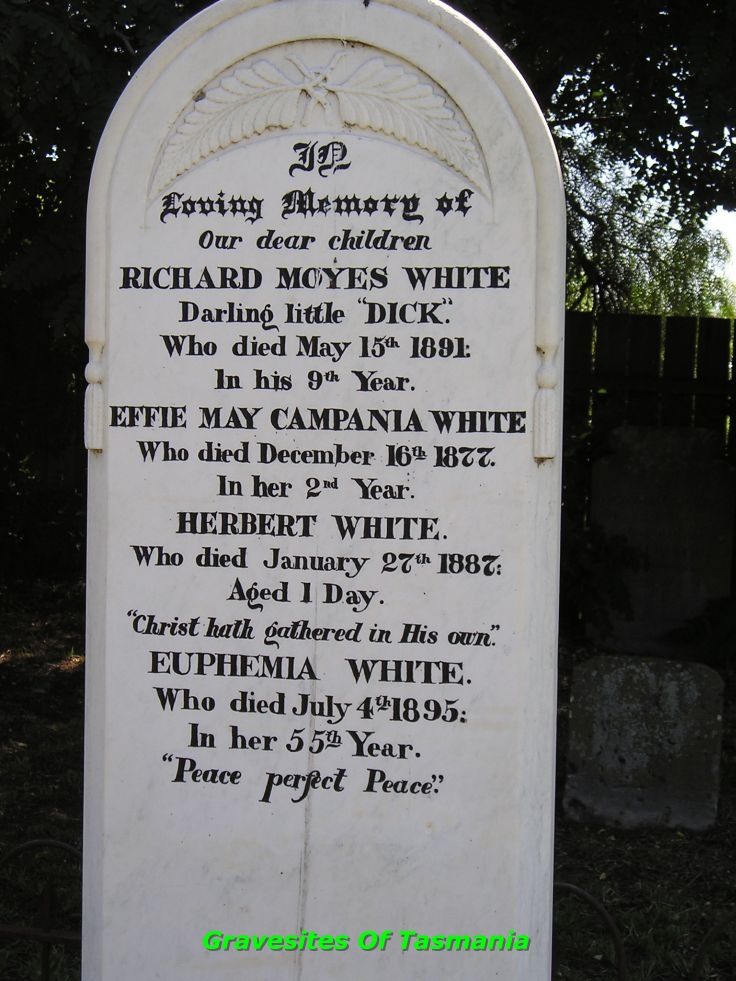 In
Loving Memory of
Our dear children
RICHARD MOYES WHITE
Darling little "DICK".
Who died May 15th 1891:
In his 9th Year.
EFFIE MAY CAMPANIA WHITE
Who died December 16th 1877.
In her 2nd Year.
HERBERT WHITE.
Who died January 27th 1887:
Aged 1 Day.
"Christ hath gathered in His own".
EUPHEMIA WHITE.
Who died July 4th 1895:
In her 55th Year.
"Peace perfect Peace".
Gravesites Of Tasmania